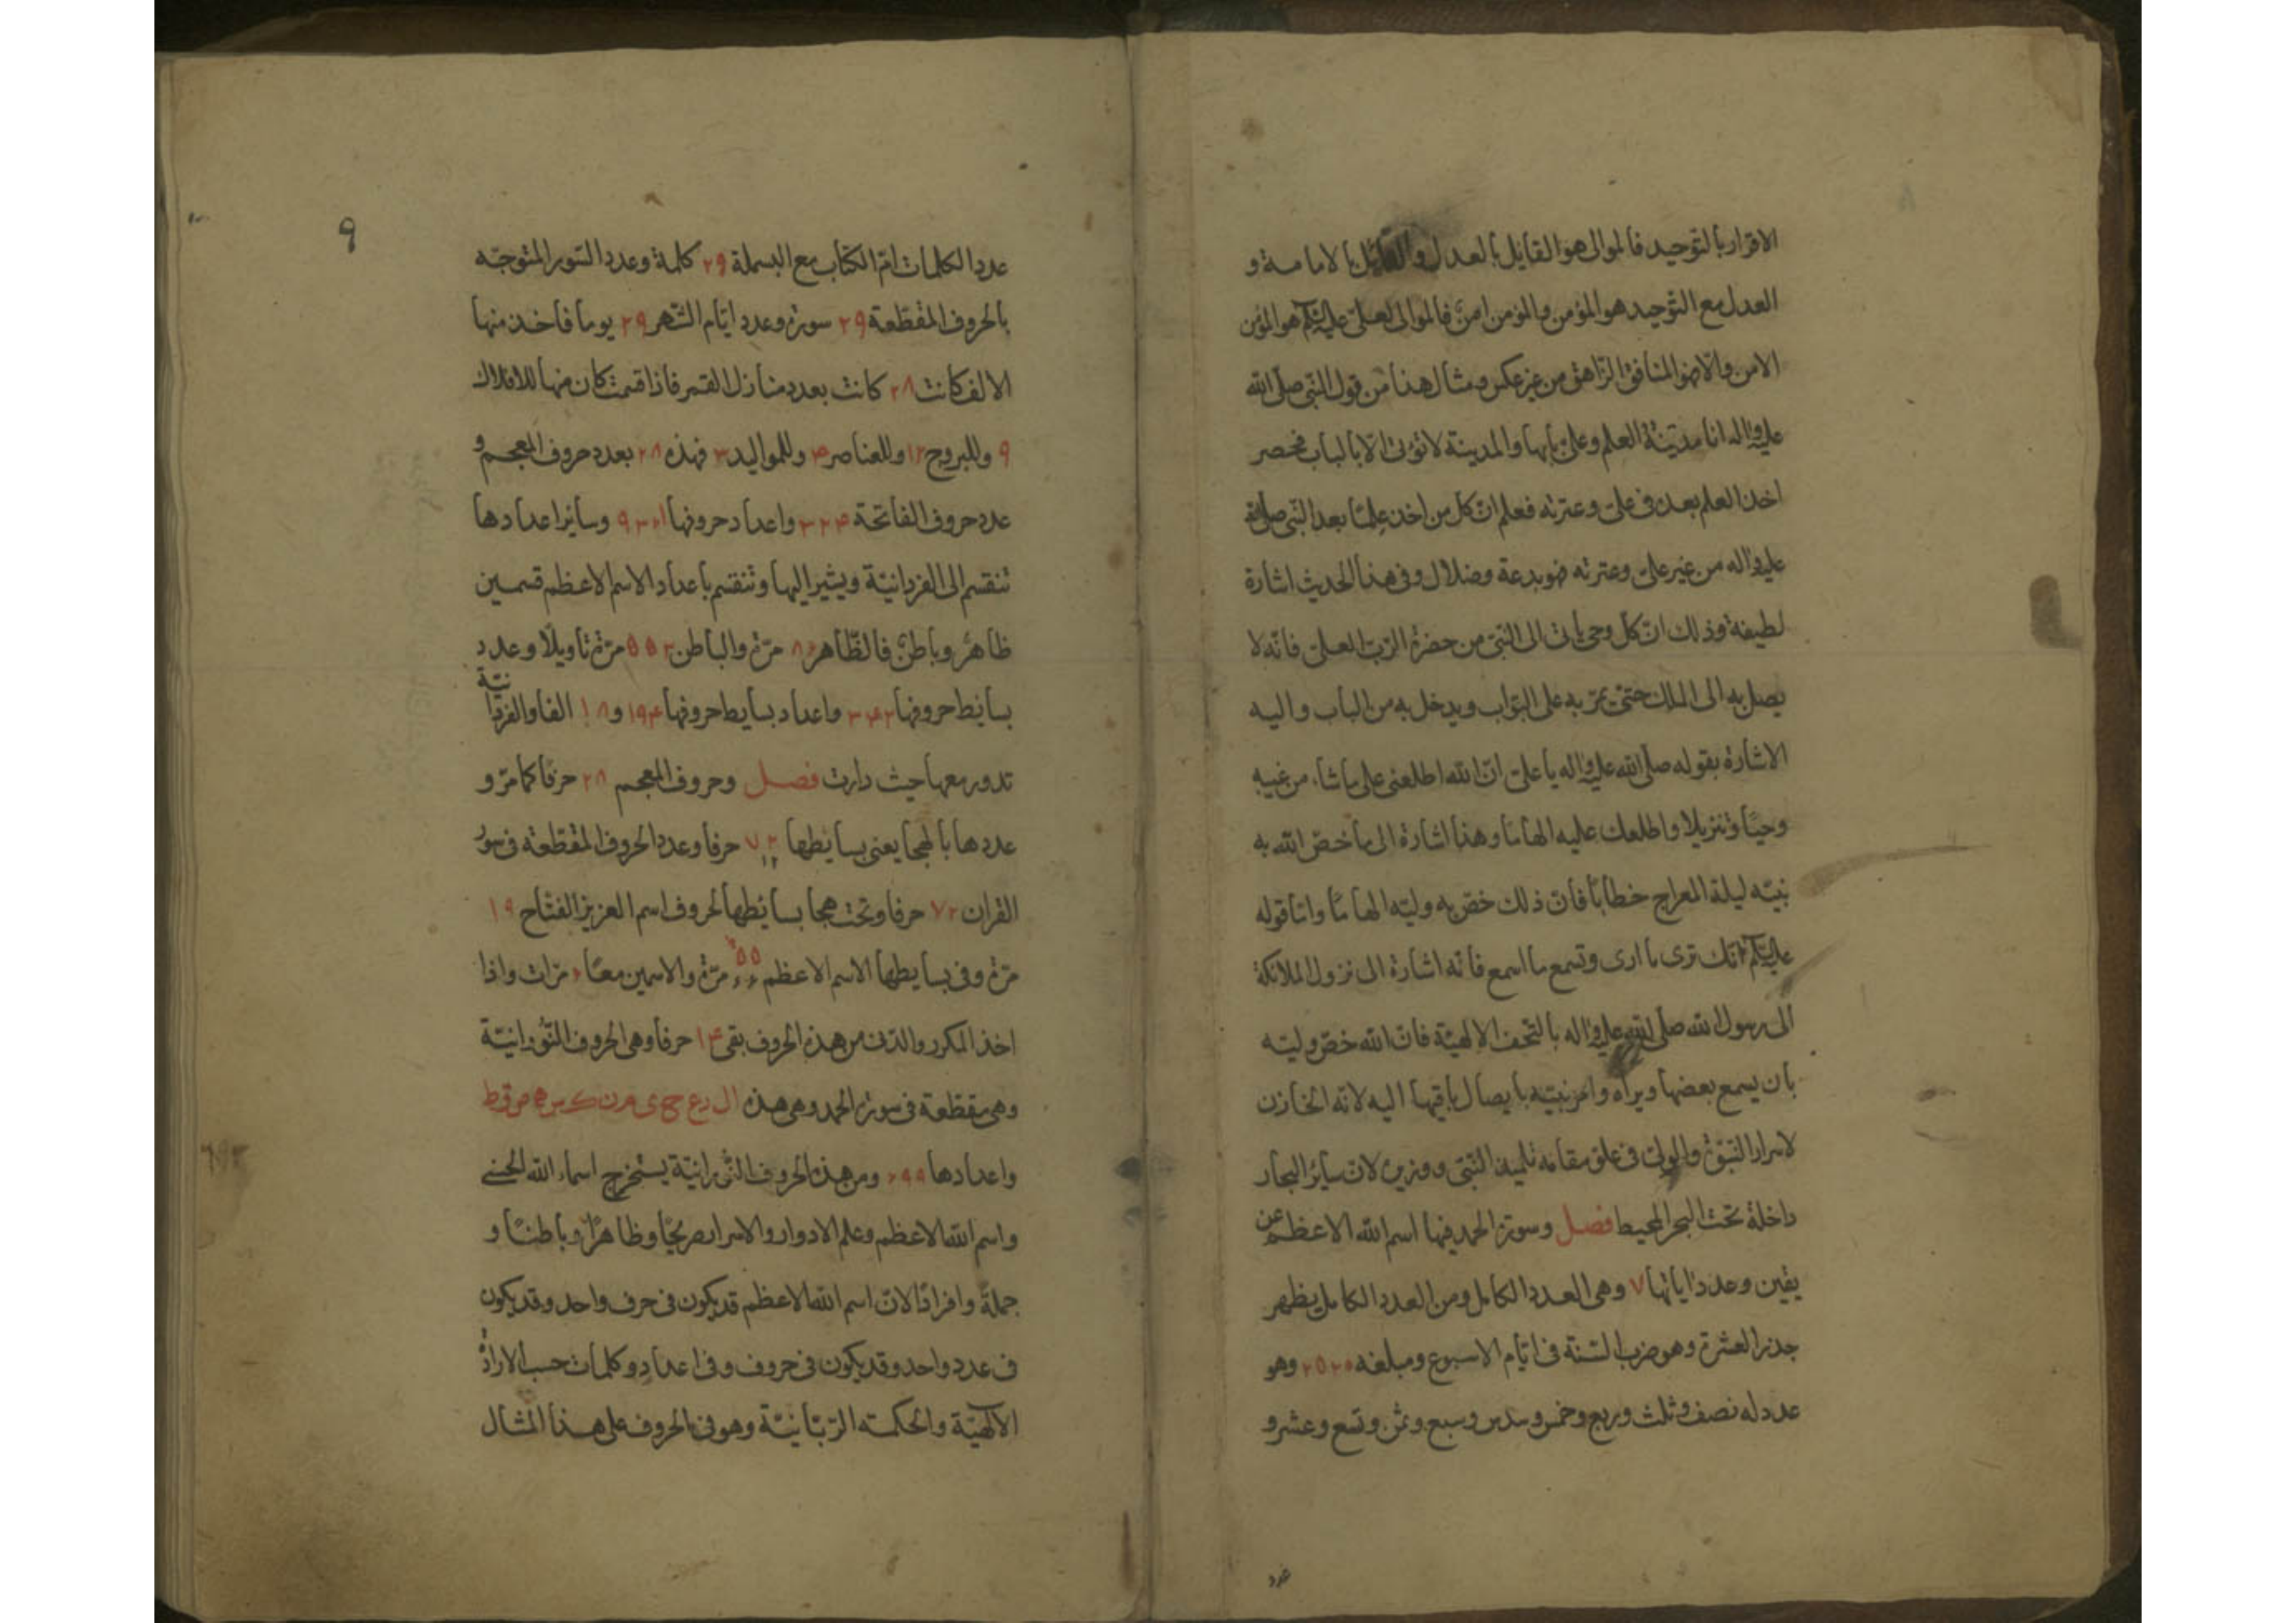 الاقرار بالتوحيد فالموالى هو القايل بالعدل والقايل بالامامة و
العدل مع التوحيد هو المؤمن والمؤمن امن فالموالى لعلى عليه السلم هو المؤمن
الامن والا فهو المنافق الزاهق من غير عكس ومثال هذا من قول النبى صلى الله
عليه واله انا مدينة العلم وعلى بابها والمدينة لا تؤتى الا بالباب فحصر
اخذ العلم بعده فى على وعترته فعلم ان كل من اخذ علما بعد النبى صلى الله
عليه واله من غير على وعترته فهو بدعة وضلال وفى هذا الحديث اشارة
لطيفة وذلك ان كل وحى ياتى الى النبى من حضرة الرب العلى فانه لا
يصل به الى الملك حتى يمر به على البواب ويدخل به من الباب واليه
الاشارة بقوله صلى الله عليه واله يا على ان الله اطلعنى على ما شاء من غيبه
وحيا وتنزيلا واطلعك عليه الهاما وهذا اشارة الى ما خص الله به
نبيه ليلة المعراج خطابا فان ذلك خص به وليه الهاما واما قوله
عليه السلم انك ترى ما ارى وتسمع ما اسمع فانه اشارة الى نزول الملائكة
الى رسول الله صلى الله عليه واله بالتحف الالهية فان الله خص وليه
بان يسمع بعضها ويراه وامر نبيه بايصال باقيها اليه لانه الخازن
لاسرار النبوة والولى فى علو مقامه تلميذ النبى ووزيره لان سائر البحار
داخلة تحت البحر المحيط فصل وسورة الحمد فيها اسم الله الاعظم عن
يقين وعدد اياتها ٧ وهى العدد الكامل ومن العدد الكامل يظهر
جذر العشرة وهو ضرب السنة فى ايام الاسبوع ومبلغه ٢٥٢٠ وهو
عدد له نصف وثلث وربع وخمس وسدس وسبع وثمن وتسع وعشر و
عدد
٩
عدد الكلمات ام الكتاب مع البسملة ٢٩ كلمة وعدد السور المتوجه
بالحروف المقطعة ٢٩ سورة وعدد ايام الشهر ٢٩ يوما فاخذ منها
الالف كانت ٢٨ كانت بعدد منازل القمر فاذا قسمت كان منها للافلاك
٩ وللبروج ١٢ وللعناصر ۴ وللمواليد ٣ فهذه ٢٨ بعدد حروف المعجم و
عدد حروف الفاتحة ٣٢۴ واعداد حروفها ٩٣٦١ وسائر اعدادها
تنقسم الى الفردانية ويشير اليها وتنقسم باعداد الاسم الاعظم قسمين
ظاهر وباطن فالظاهر مرة والباطن مرة تاويلا وعدد
بسائط حروفها واعداد بسايط حروفها الفا والفردانية
تدور معها حيث دارت فصل وحروف المعجم ٢٨ حرفا كما مر و
عددها بالهجا يعنى بسايطها ٧٢ حرفا وعدد الحروف المقطعة فى سور
القران ٧٢ حرفا وتحت هجا بسائطها لحروف اسم العزيز الفتاح ١٩
مرة وفى بسايطها الاسم الاعظم مرة والاسمين معا مرات واذا
اخذ المكرر والدن من هذه الحروف بقى ١۴ حرفا وهى الحروف النورانية
وهى مقطعة فى سورة الحمد وهى هذه ال ر ع ح ى م ن ك س ه ص ق ط
واعدادها ٦٩٩ ومن هذه الحروف النورانية يستخرج اسماء الله الحسنى
واسم الله الاعظم وعلم الادوار والاسرار صريحا وظاهرا وباطنا و
جملة وافرادا لان اسم الله الاعظم قد يكون فى حرف واحد وقد يكون
فى عدد واحد وقد يكون فى حروف وفى اعداد وكلمات حسب الارادة
الالهية والحكمته الربانية وهو فى الحروف على هذا المثال